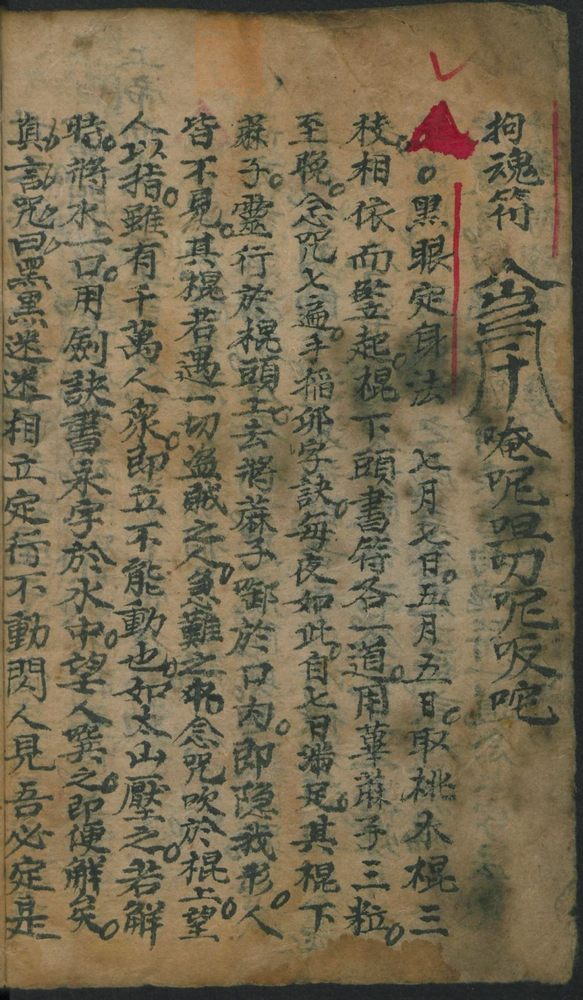 拘魂符 唵呢呾叨呢吸咜
黑眼定身法 七月七日。五月五日。取桃木棍三
枝。相依而竪起棍。下頭書符各一道。用萆蔴子三粒。
至晚。念咒七遍。手稲邜字訣。每夜如此。自七日滿足。其棍下
蔴子。靈行於棍頭上去。將蔴子啣於口內。即隐我形。人
皆不見。其棍若遇一切盗賊之人。急難之中。念咒吹於棍上。望
人以指。雖有千萬人衆。即立不能動也。如太山壓之。若解
時。將水一口。用劍訣書永字於水中。望人噀之。即便解矣。
真言咒曰黑黑迷迷相立定行不動閃人見吾必定是